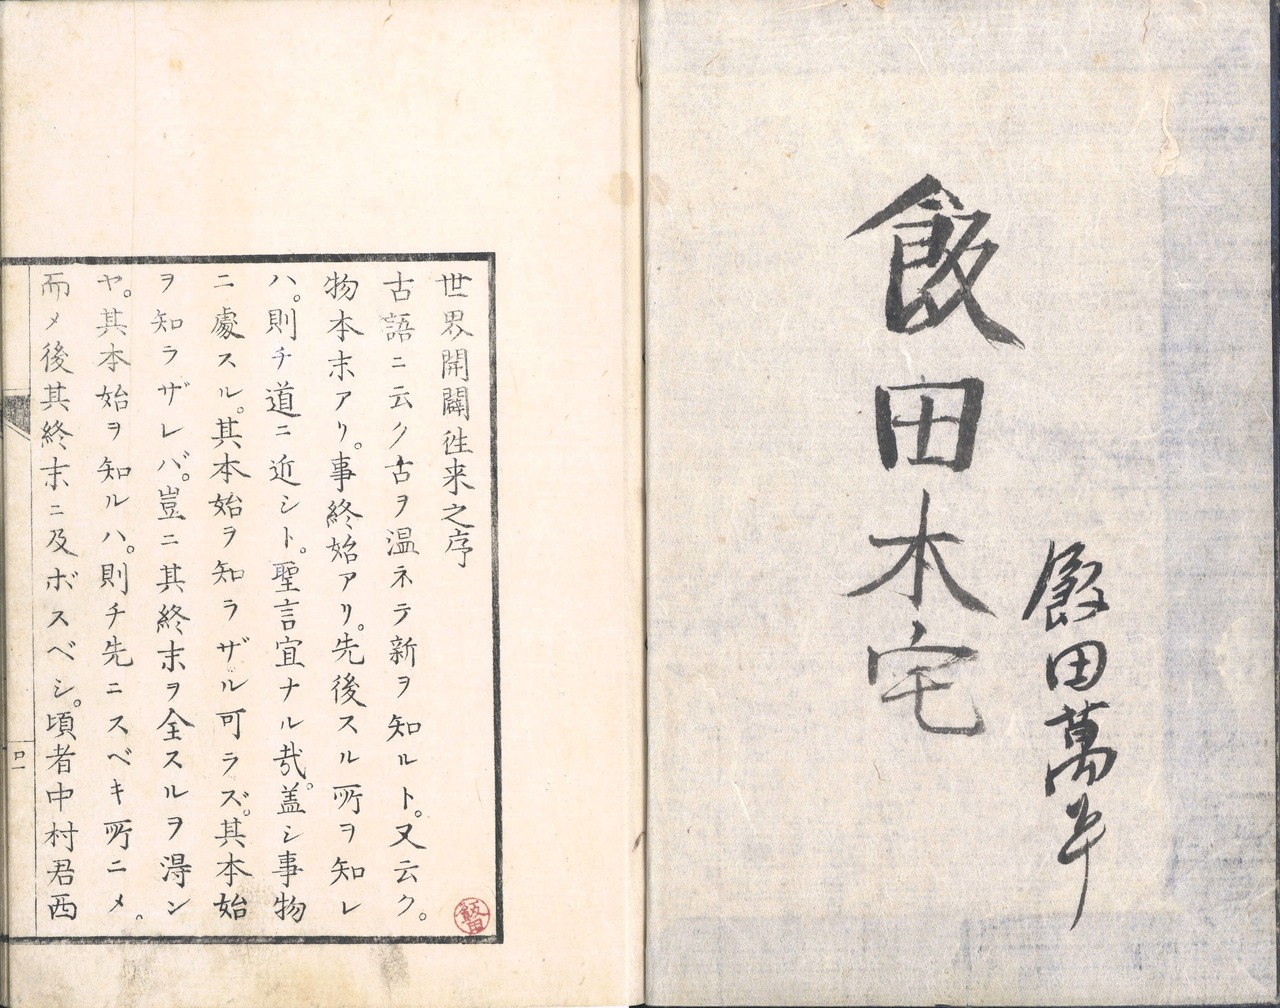 飯田萬年
飯田本宅
世界開闢徃来之序
古語ニ云ク古ヲ温ネテ新ヲ知ルト。又云ク。
物本末アリ。事終始アリ。先後スル所ヲ知レ
ハ。則チ道ニ近シト。聖言宜ナル哉。盖シ事物
ニ處スル。其本始ヲ知ラザル可ラズ。其本始
ヲ知ラザレバ。豈ニ其終末ヲ全スルヲ淂ン
ヤ。其本始ヲ知ルハ。則チ先ニスベキ所ニメ。
而メ後其終末ニ及ボスベシ。頃者中村君西
口一